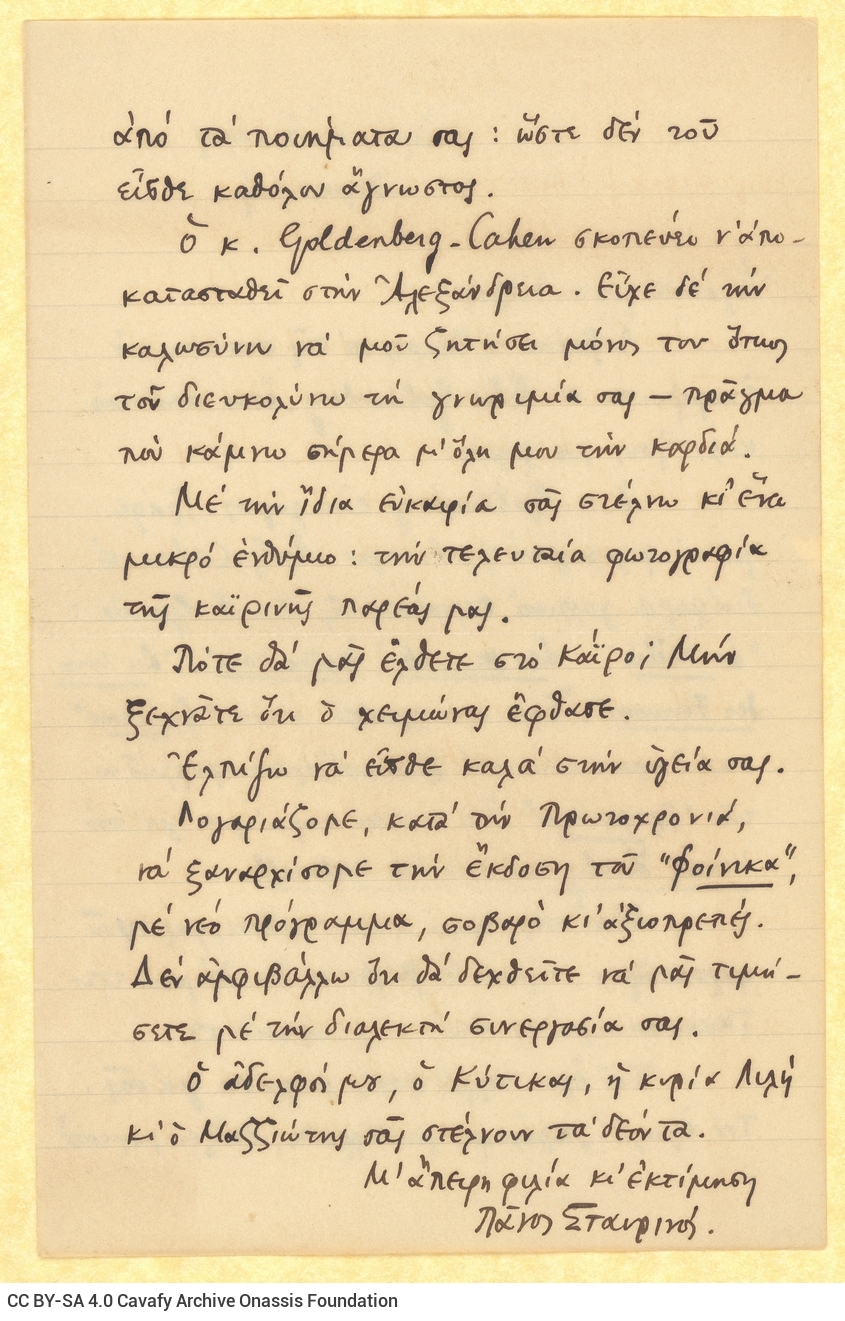 ἀπό τά ποιήματα σας : ὥστε δέν τοῦ
εἶσθε καθόλου ἄγνωστος.
Ὁ κ. Goldenberg-Cahen σκοπεύει ν' ἀπο-
κατασταθεῖ στήν Ἀλεξάνδρεια. Εἶχε δέ τήν
καλωσύνη νά μοῦ ζητήσει μόνος του ὅπως
τοῦ διευκολύνω τή γνωριμία σας — πρᾶγμα
πού κάμνω σήμερα μ' ὅλη μου τήν καρδιά.
Μέ τήν ἴδια εὐκαιρία σᾶς στέλνω κι' ἕνα
μικρό ἐνθύμιο : τήν τελευταία φωτογραφία
τῆς καϊρινῆς παρέας μας.
Πότε θά μᾶς ἔλθετε στό Κάϊρο; Μήν
ξεχνᾶτε ὅτι ὁ χειμώνας ἔφθασε.
Ἐλπίζω νά εἶσθε καλά στήν ὑγεία σας.
Λογαριάζομε, κατά τήν Πρωτοχρονιά,
νά ξαναρχίσομε τήν ἔκδοση τοῦ "Φοίνικα",
μέ νέο πρόγραμμα, σοβαρό κι' ἀξιοπρεπές.
Δέν ἀμφιβάλλω ὅτι θά δεχθεῖτε νά μᾶς τιμή-
σετε μέ τήν διαλεκτή συνεργασία σας.
Ὁ ἀδελφός μου, ὁ Κύτικας, ἡ κυρία Λιλή
κι' ὁ Μαζζιώτης σᾶς στέλνουν τά δέοντα.
Μ' ἄπειρη φιλία κι' ἐκτίμηση
Πᾶνος Σταυρινός.
CC BY-SA 4.0 Cavafy Archive Onassis Foundation